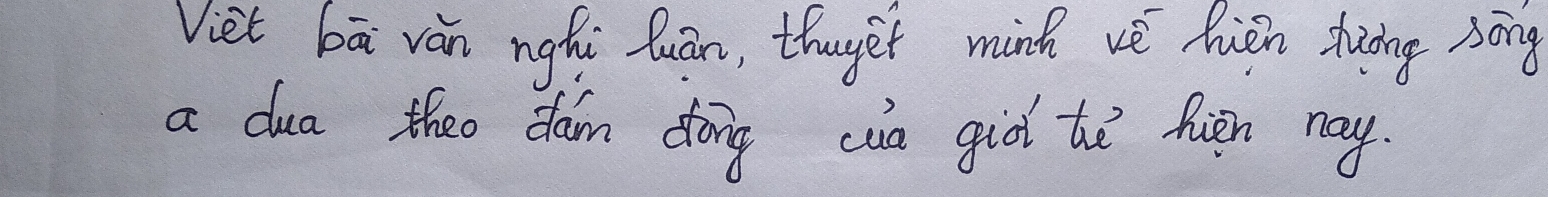 Viết bài văn nghị luận, thuyết minh về hiện tượng sống
a dua theo đám đông của giới trẻ hiện nay.